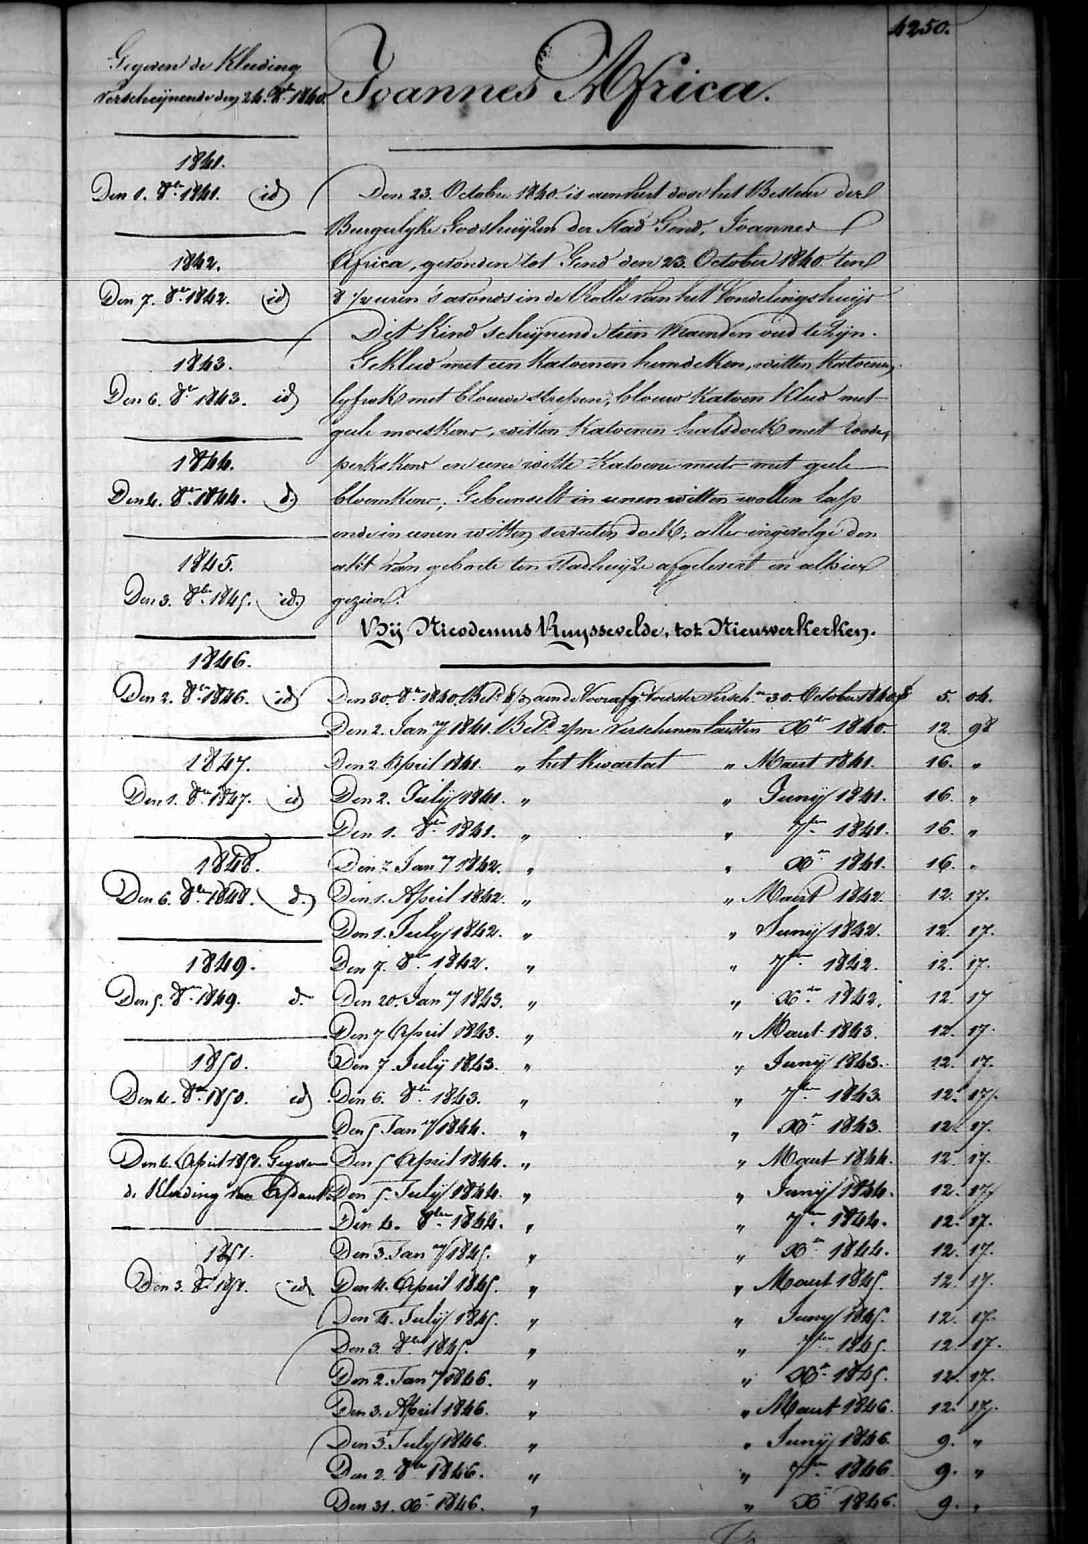 4250.
Gegeven de Kleeding
Verscheijnende den 24. 8br 1840.
Joannes Africa.
1841.
Den 1. 8br 1841. id
1842.
Den 7. 8br 1842. id
1843.
Den 6. 8br 1843. id
1844.
Den 4. 8br 1844. d.
1845.
Den 3. 8br 1845. id.
1846.
Den 2. 8br 1846. id
1847.
Den 1. 8br 1847. id
1848.
Den 6. 8br 1848. d.
1849.
Den 5. 8br 1849. d.
1850.
Den 4. 8br 1850. id
Den 6. April 1851. Gegeven
de Kleeding van
1851.
Den 3. 8br 1851. id
Den 23. October 1840 is aenveert door het Bestier der
Burgerlyke Godshuijzen der Stad Gend, Joannes
Africa, gevonden tot Gend den 23. October 1840 ten
8 1/2 uren 's avonds in de Rolle van het Vondelingshuijs
Dit Kind scheijnende tien Maenden oud te zijn.
Gekleed met een Katoenen hemdeken, witten Katoenen
lyfrok met blouwe strepen, blouw Katoen Kleed met
geele moeskens, witten Katoenen halsdoek met roode
perkskens en eene witte Katoene muts met geele
bloemkens, Gebunselt in eenen witten wollen lap
ende in eenen witten servieten doek, alles ingevolge den
akt van geboorte ten stadhuijze afgelevert en alhier
gezien.
Bij Nicodemus Ruyssevelde, tot Nieuwerkerken.
Den 30. 8br 1840. Bet. aende Voorafg. Voedster Versch. 30. October 1840 5. 04.
Den 2. Jany 1841. Betd 2/m Verschenen laetsten Xbr 1840. 12. 98
Den 2 April 1841. " het Kwartal " Maert 1841. 16. "
Den 2. Julij 1841. " " Junij 1841. 16. "
Den 1. 8br 1841. " " 7br 1841. 16. "
Den 7 Jany 1842. " " Xbr 1841. 16. "
Den 1. April 1842. " " Maert 1842. 12. 17.
Den 1. July 1842. " " Junij 1842. 12. 17.
Den 7. 8br 1842. " " 7br 1842. 12. 17.
Den 20. Jany 1843. " " Xbr 1842. 12. 17
Den 7 April 1843. " " Maert 1843. 12. 17.
Den 7. Julij 1843. " " Junij 1843. 12. 17.
Den 6. 8br 1843. " " 7br 1843. 12. 17.
Den 5 Jany 1844. " " Xbr 1843. 12. 17.
Den 5 April 1844. " " Maert 1844. 12. 17.
Den 5. Julij 1844. " " Junij 1844. 12. 17
Den 4. 8ber 1844. " " 7br 1844. 12. 17.
Den 3. Jany 1845. " " Xbr 1844. 12. 17.
Den 4. April 1845. " " Maert 1845. 12. 17.
Den 4. Julij 1845. " " Juny 1845. 12. 17.
Den 3. 8br 1845. " " 7br 1845. 12 17.
Den 2. Jany 1846. " " Xbr 1845. 12. 17.
Den 3. April 1846. " " Maert 1846. 12. 17.
Den 3. July 1846. " " Junij 1846. 9. "
Den 2. 8br 1846. " " 7br 1846 9. "
Den 31. Xbr 1846. " " Xbr 1846. 9. "